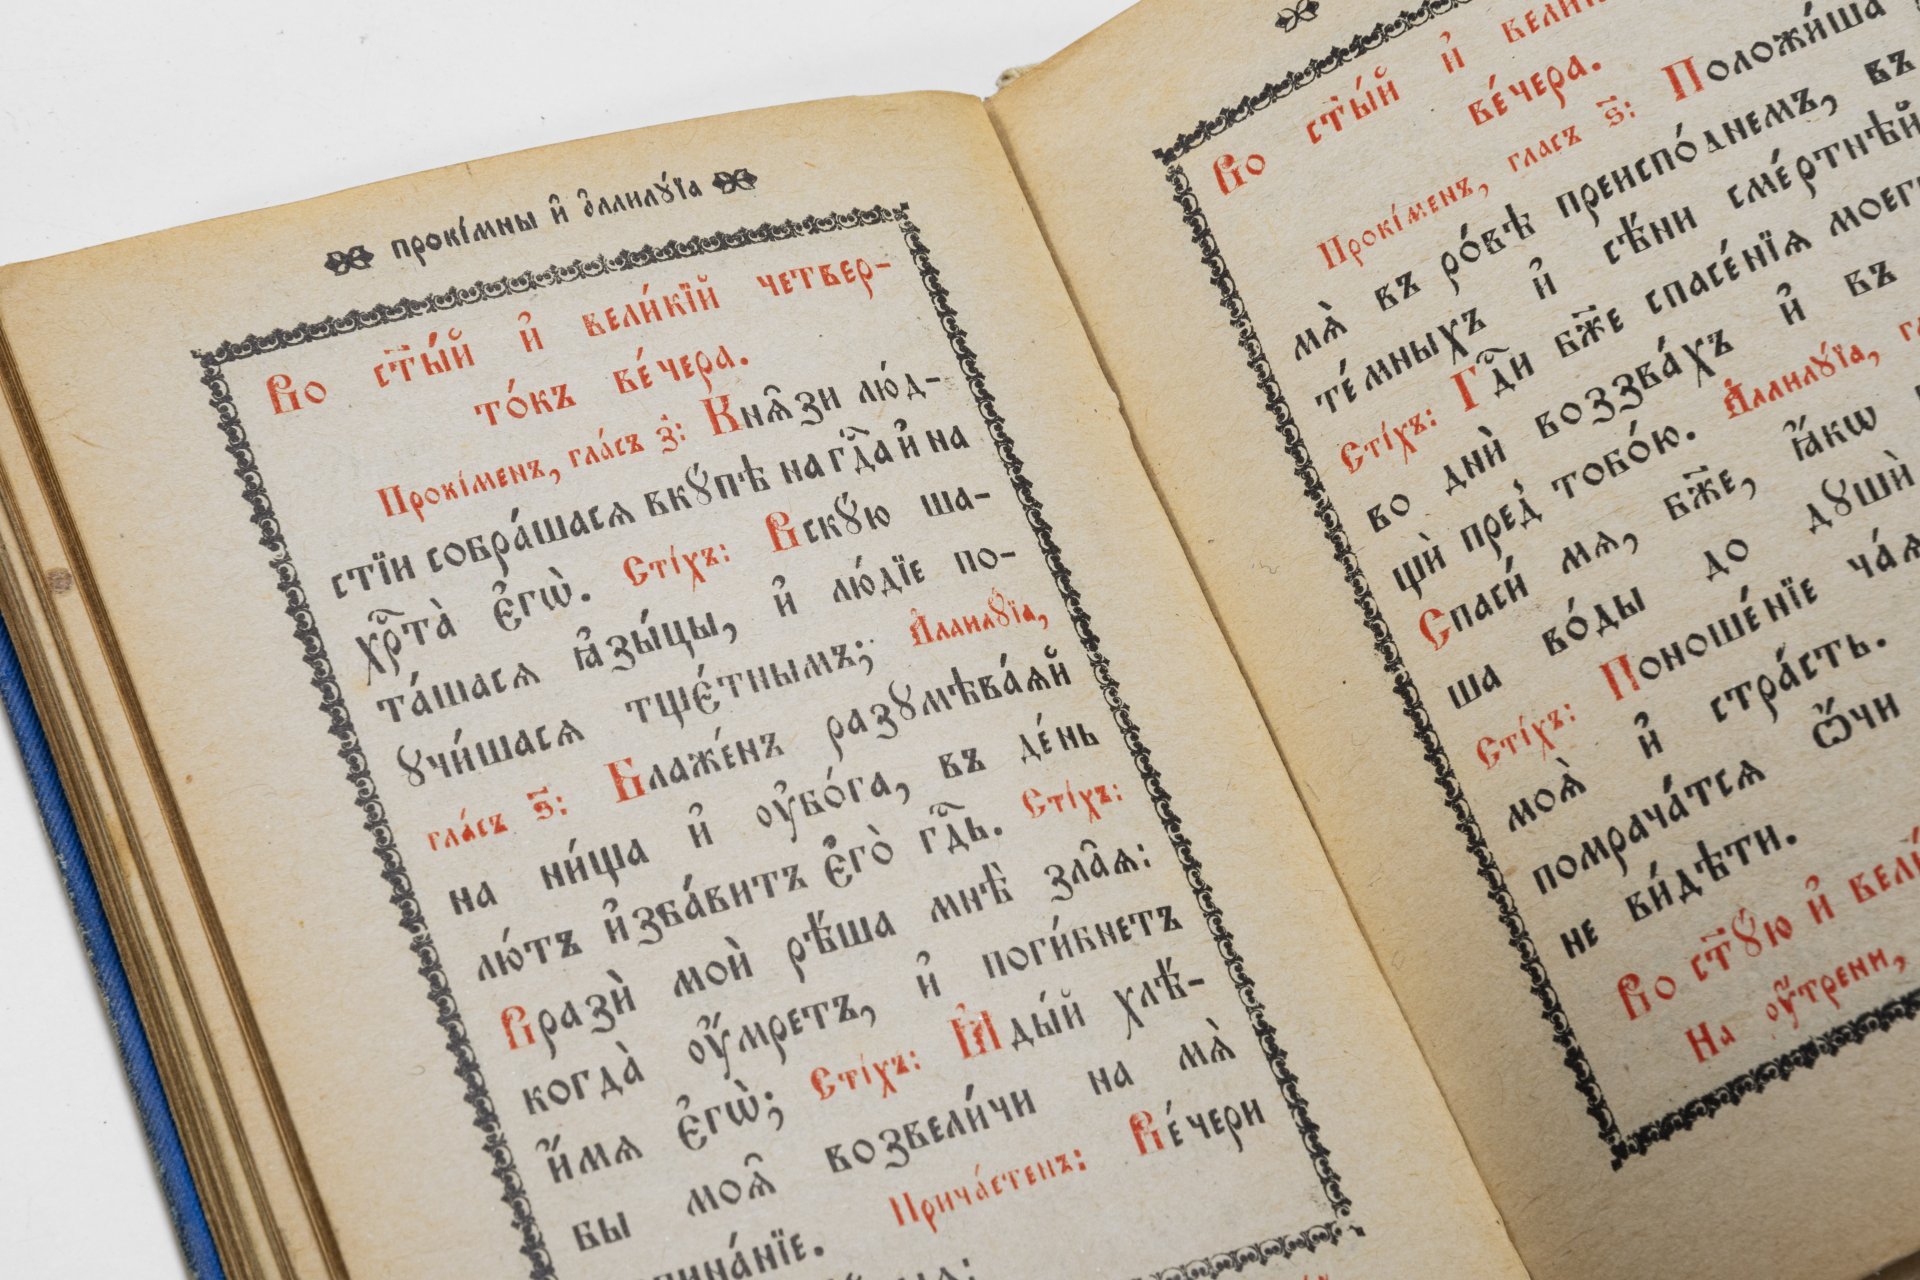 прокі́мны и҆ а҆ллилꙋ́їа
Во ст҃ы́й и҆ вели́кїй четвер-
то́къ ве́чера.
Прокі́менъ, гла́съ з҃: Кнѧ̑зи лю́д-
стїи собра́шасѧ вкꙋ́пѣ на гдⷭ҇а и҆ на
хрⷭ҇та̀ є҆гѡ̀. Сті́хъ: Вскꙋ́ю ша-
та́шасѧ ꙗ҆зы́цы, и҆ лю́дїе по-
ꙋчи́шасѧ тщє́тнымъ; А҆ллилꙋ́їа,
гла́съ ѕ҃: Блаже́нъ разꙋмѣва́ѧй
на ни́ща и҆ ᲂу҆бо́га, въ де́нь
лю́тъ и҆зба́витъ є҆го̀ гдⷭ҇ь. Сті́хъ:
Вразѝ моѝ рѣ́ша мнѣ̀ зла̑ѧ:
когда̀ ᲂу҆́мретъ, и҆ поги́бнетъ
и҆́мѧ є҆гѡ̀; Сті́хъ: Ꙗ҆ды́й хлѣ́-
бы моѧ̑ возвели́чи на мѧ̀
Прича́стенъ: Ве́чери
Во ст҃ы́й и҆ вели́
ве́чера.
Прокі́менъ, гласъ ѕ҃: Положи́ша
мѧ̀ въ ро́вѣ преиспо́днемъ, въ
те́мныхъ и҆ сѣ́ни сме́ртнѣй
Сті́хъ: Гдⷭ҇и бж҃е спасе́нїѧ моегѡ
во днѝ воззва́хъ и҆ въ
щѝ пред̾ тобо́ю. А҆ллилꙋ́їа,
Спаси́ мѧ, бж҃е, ꙗ҆́кѡ
ша во́ды до дꙋшѝ
Сті́хъ: Поноше́нїе ча́ѧ
моѧ̀ и҆ стра́сть.
помрача́тсѧ ѻ҆́чи
не ви́дѣти.
Во ст҃ꙋ́ю и҆ вели́
На ᲂу҆́трени,